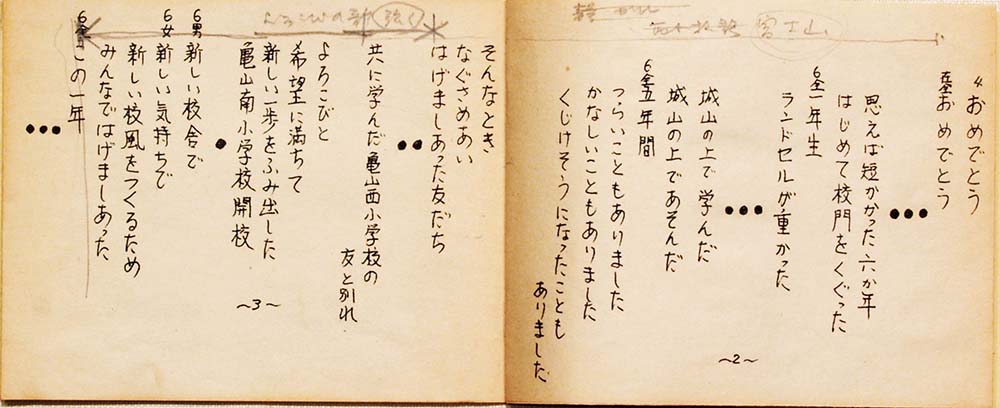 〝おめでとう
在全おめでとう
思えば短かかった六か年
はじめて校門をくぐった
6全一年生
ランドセルが重かった
城山の上で学んだ
城山の上であそんだ
6全五年間
つらいこともありました
かなしいこともありました
くじけそうになったことも
ありました
〜2〜
富士山
よろこびの歌 強く
そんなとき
なぐさめあい
はげましあった友だち
共に学んだ亀山西小学校の
友と別れ
よろこびと
希望に満ちて
新しい一歩をふみ出した
亀山南小学校開校
6男 新しい校舎で
6女 新しい気持ちで
新しい校風をつくるため
みんなではげましあった
6全この一年
〜3〜